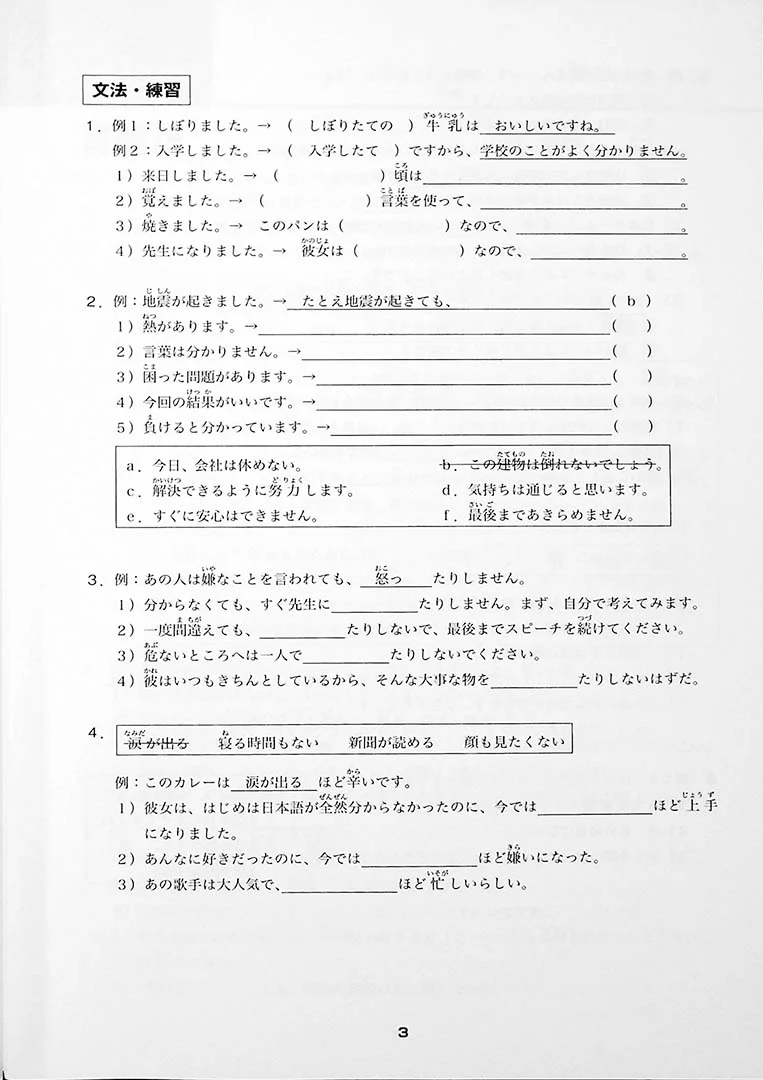 文法・練習
1．例1：しぼりました。→ （ しぼりたての ）牛乳は おいしいですね。
例2：入学しました。→ （ 入学したて ）ですから、学校のことがよく分かりません。
1）来日しました。→ （　　　　　　）頃は＿＿＿＿＿＿＿＿＿＿＿＿。
2）覚えました。→ （　　　　　　）言葉を使って、＿＿＿＿＿＿＿＿＿＿。
3）焼きました。→ このパンは（　　　　　　）なので、＿＿＿＿＿＿＿＿。
4）先生になりました。→ 彼女は（　　　　　　）なので、＿＿＿＿＿＿＿＿。
2．例：地震が起きました。→ たとえ地震が起きても、＿＿＿＿＿＿（ b ）
1）熱があります。→＿＿＿＿＿＿＿＿＿＿＿＿（　　）
2）言葉は分かりません。→＿＿＿＿＿＿＿＿＿＿＿＿（　　）
3）困った問題があります。→＿＿＿＿＿＿＿＿＿＿＿＿（　　）
4）今回の結果がいいです。→＿＿＿＿＿＿＿＿＿＿＿＿（　　）
5）負けると分かっています。→＿＿＿＿＿＿＿＿＿＿＿＿（　　）
a．今日、会社は休めない。　b．この建物は倒れないでしょう。
c．解決できるように努力します。　d．気持ちは通じると思います。
e．すぐに安心はできません。　f．最後まであきらめません。
3．例：あの人は嫌なことを言われても、 怒っ たりしません。
1）分からなくても、すぐ先生に＿＿＿＿＿＿たりしません。まず、自分で考えてみます。
2）一度間違えても、＿＿＿＿＿＿たりしないで、最後までスピーチを続けてください。
3）危ないところへは一人で＿＿＿＿＿＿たりしないでください。
4）彼はいつもきちんとしているから、そんな大事な物を＿＿＿＿＿＿たりしないはずだ。
4．涙が出る　寝る時間もない　新聞が読める　顔も見たくない
例：このカレーは 涙が出る ほど辛いです。
1）彼女は、はじめは日本語が全然分からなかったのに、今では＿＿＿＿＿＿＿＿ほど上手
になりました。
2）あんなに好きだったのに、今では＿＿＿＿＿＿＿＿ほど嫌いになった。
3）あの歌手は大人気で、＿＿＿＿＿＿＿＿ほど忙しいらしい。
3